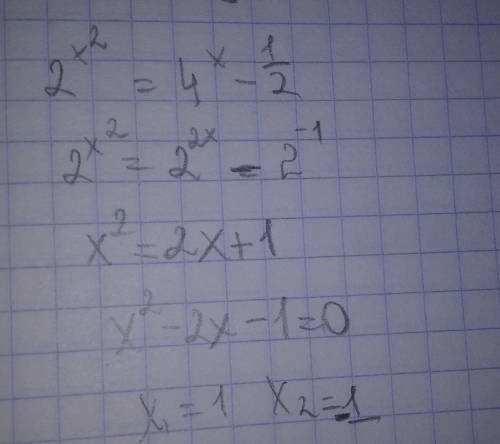 2^{x^2} = 4^x - \frac{1}{2}
2^{x^2} = 2^{2x} - 2^{-1}
x^2 = 2x + 1
x^2 - 2x - 1 = 0
x_1 = 1   x_2 = 1